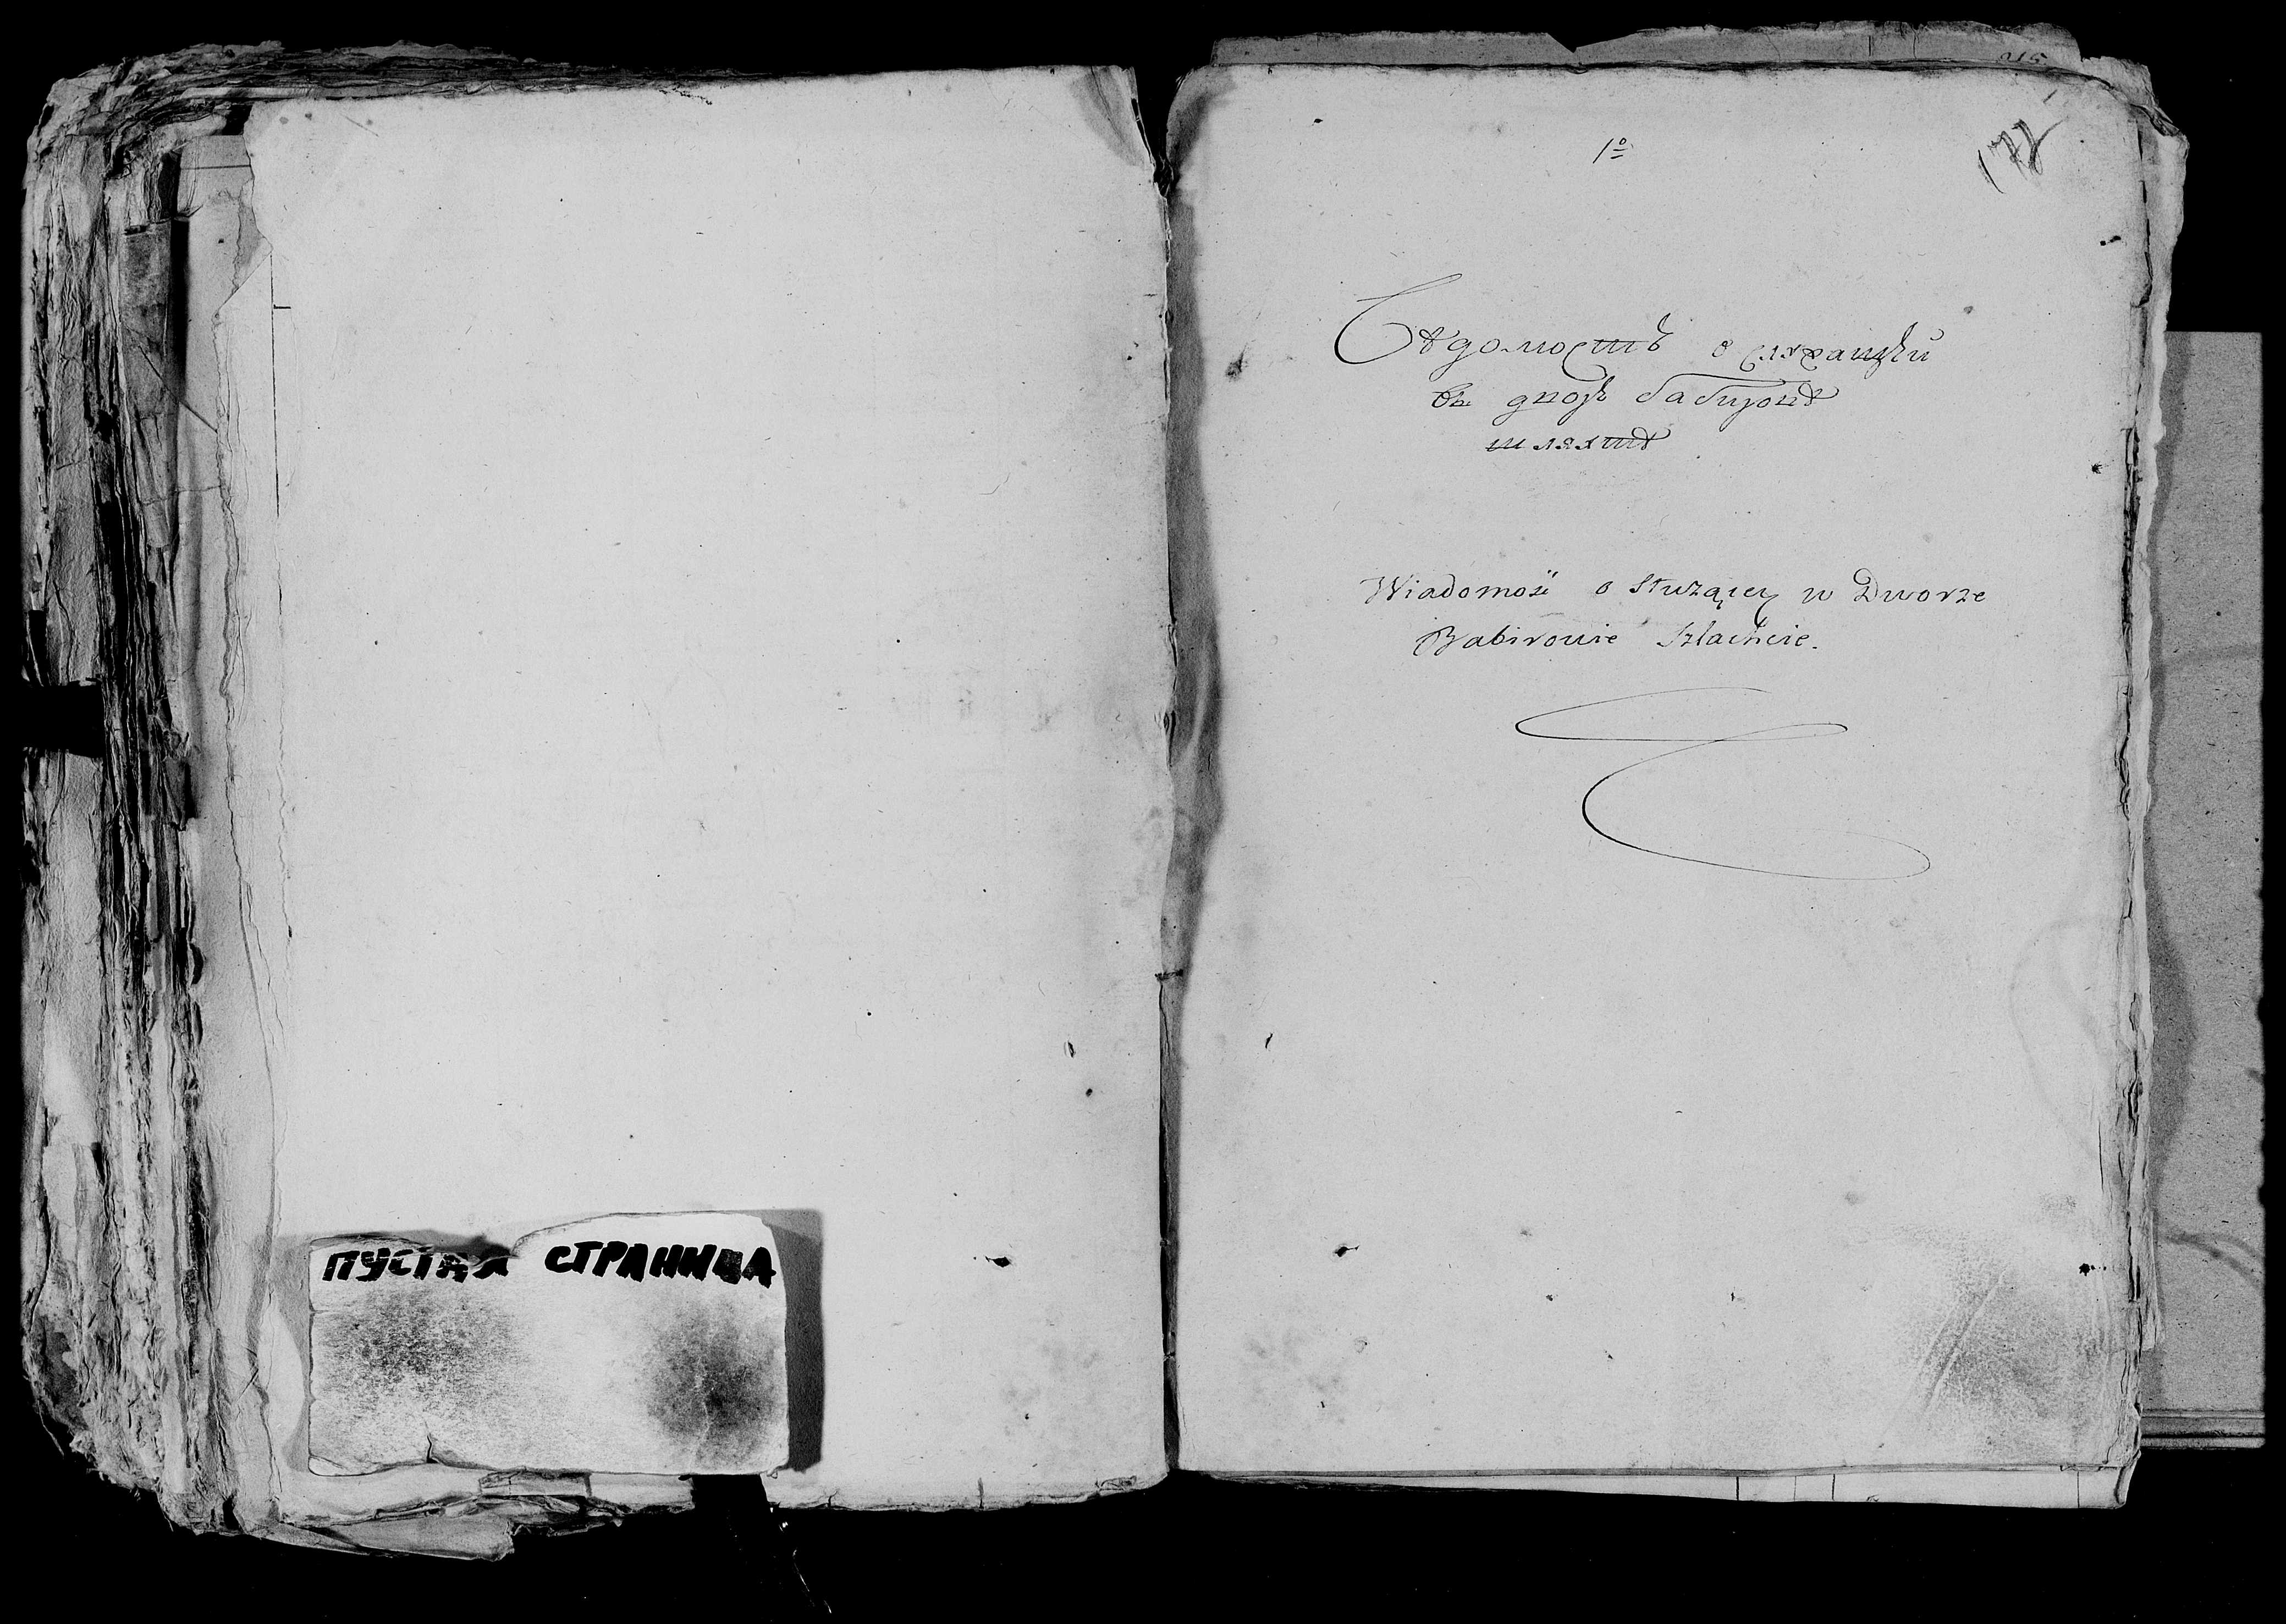 ПУСТАЯ СТРАНИЦА
1º
172
Ведомость о
въ дворѣ бабировѣ
шляхтѣ
Wiadomość o służącey w Dworze
Babirowie Szlachcie.